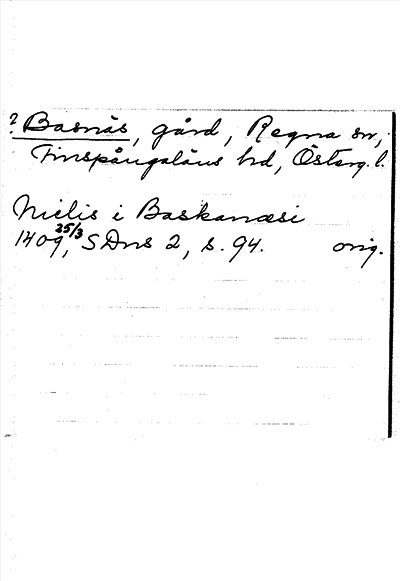 ? Basnäs, gård, Regna sn,
Finspångaläns hd, Österg. l.
Nielis i Baskanæsi
1409 25/3, SDns 2, s. 94. orig.